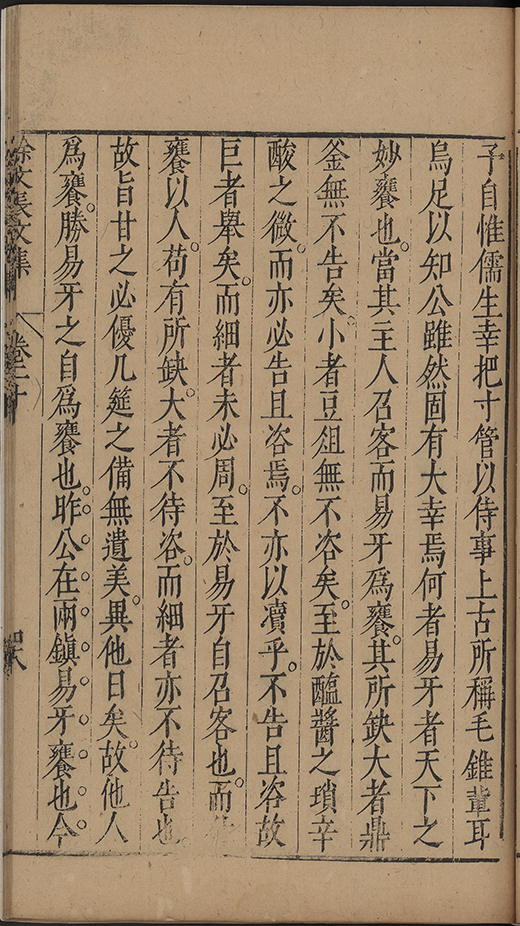 子自惟儒生幸把寸管以侍事上古所稱毛錐輩耳
烏足以知公雖然固有大幸焉何者易牙者天下之
妙饔也當其主人召客而易牙爲饔其所缺大者鼎
釜無不告矣小者豆俎無不咨矣至於醢醬之瑣辛
酸之微而亦必告且咨焉不亦以瀆乎不告且咨故
巨者舉矣而細者未必周至於易牙自召客也而
饔以人苟有所缺大者不待咨而細者亦不待告也
故旨甘之必優几筵之備無遺美異他日矣故他人
爲饔勝易牙之自爲饔也昨公在兩鎮易牙饔也今
徐文長文集 卷二十